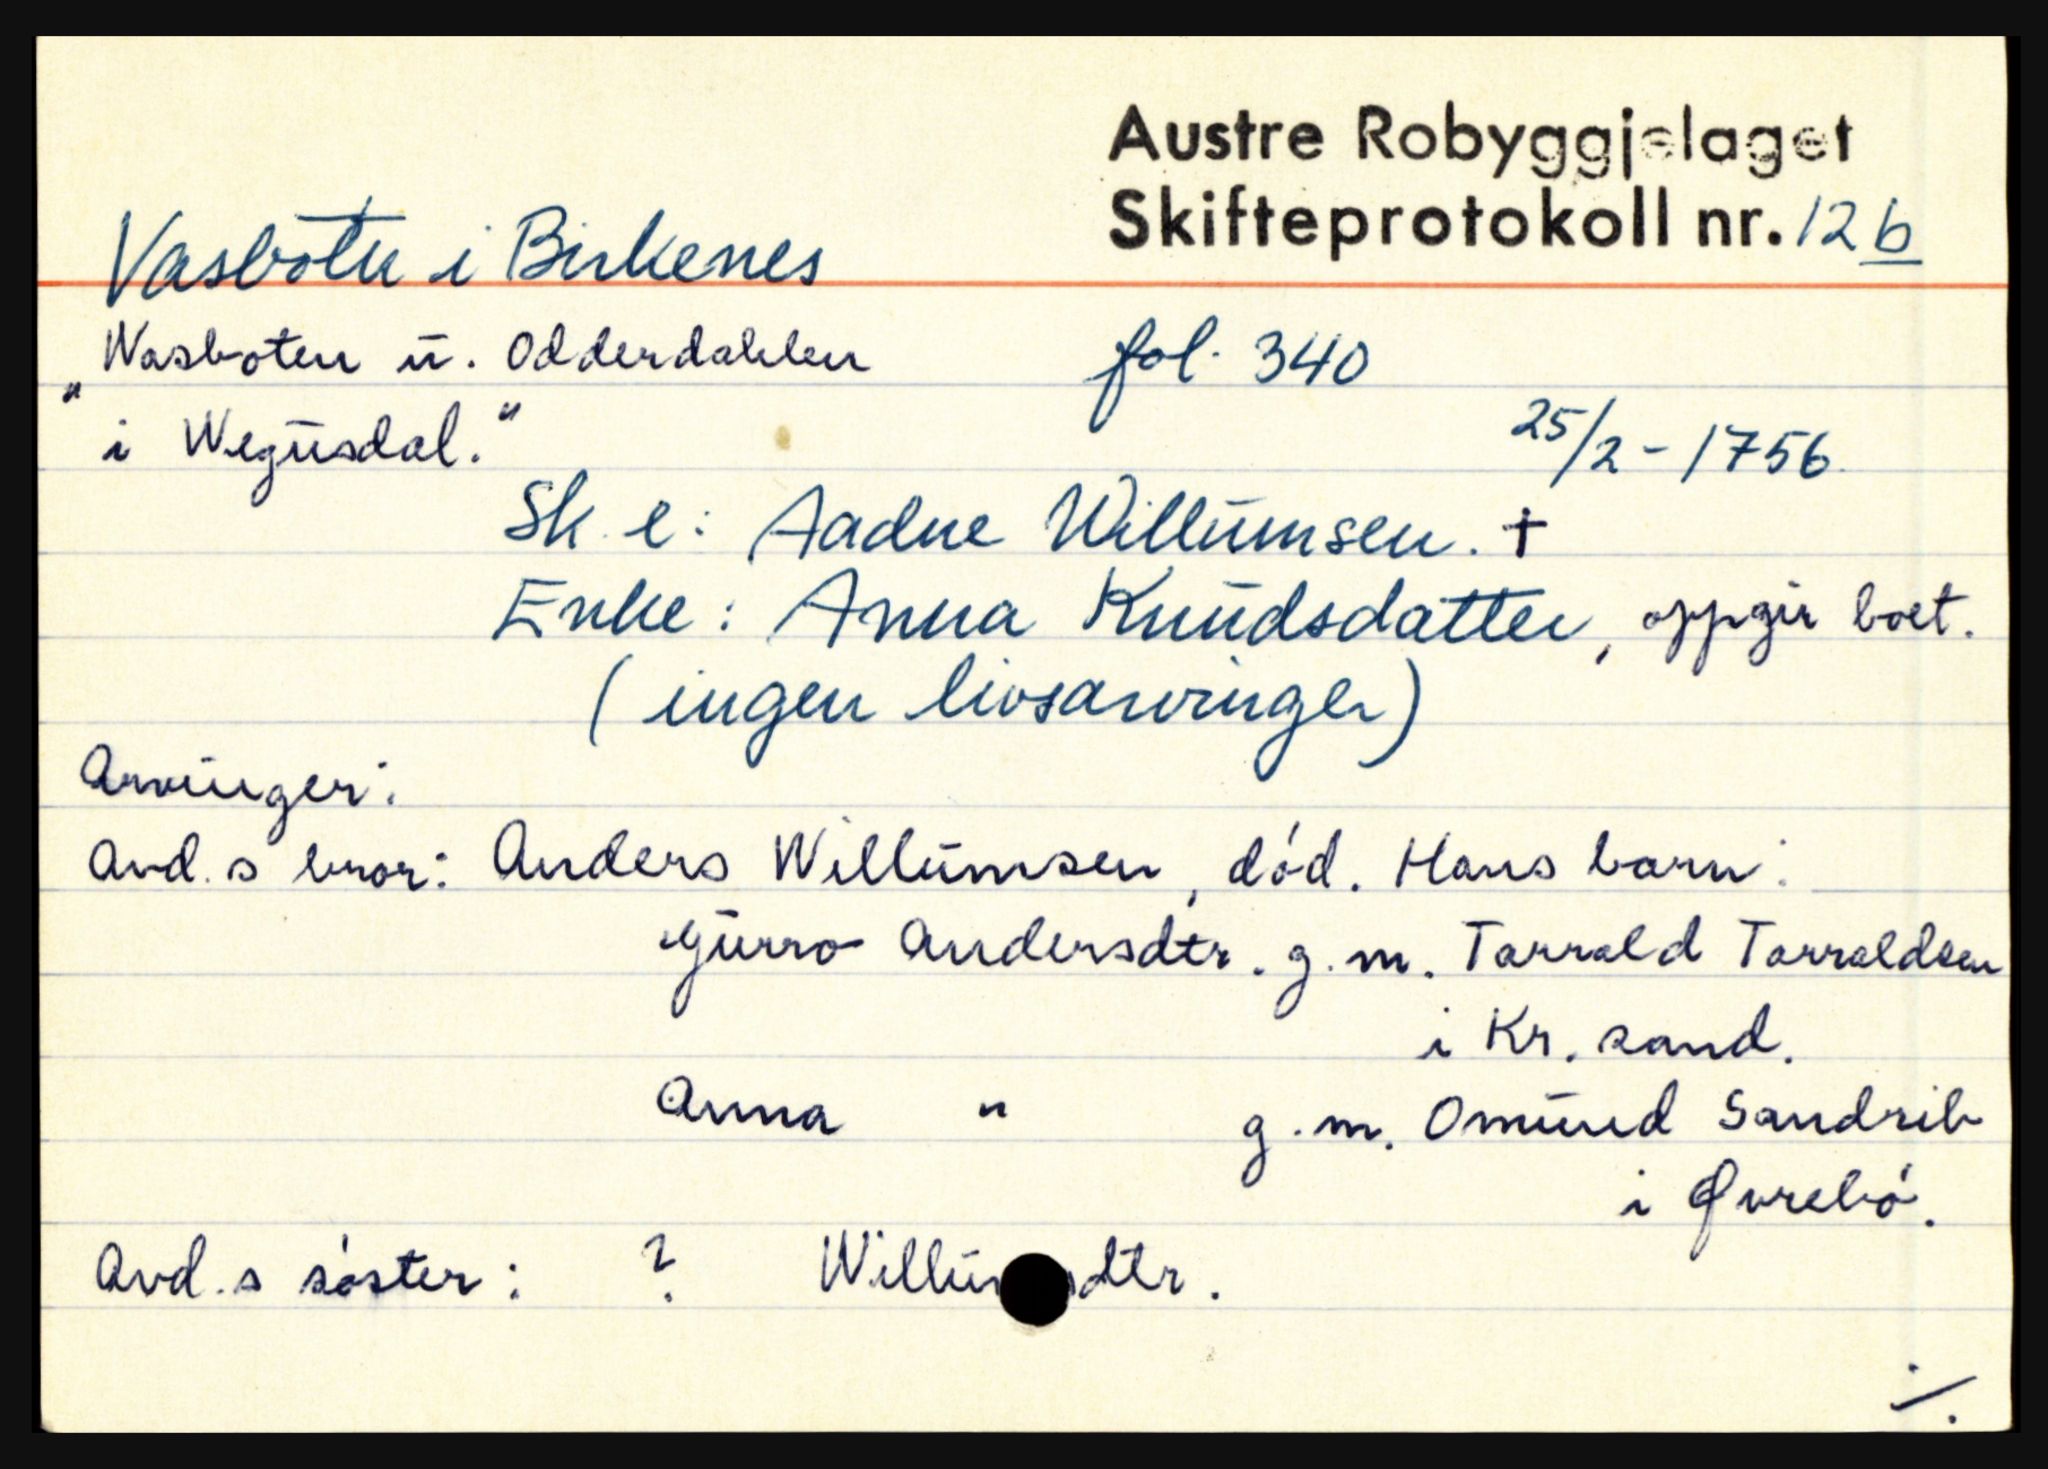 Austre Robyggjelaget
Skifteprotokoll nr. 12 b
Vasbotn i Birkenes
"Wasboten u. Odderdahlen fol. 340
i Wegusdal." 25/2 - 1756.
Sk. e: Aadne Willumsen. †
Enke: Anna Knudsdatter, oppgir boet.
(ingen livsarvinger)
Arvinger:
Avd.s bror: Anders Willumsen, död. Hans barn:
Gurro Andersdtr. g.m. Tarrald Tarraldsen
i Kr.sand.
Anna " g.m. Omund Sandrib
i Øvrebö.
Avd.s söster: ? Willumsdtr.
./.